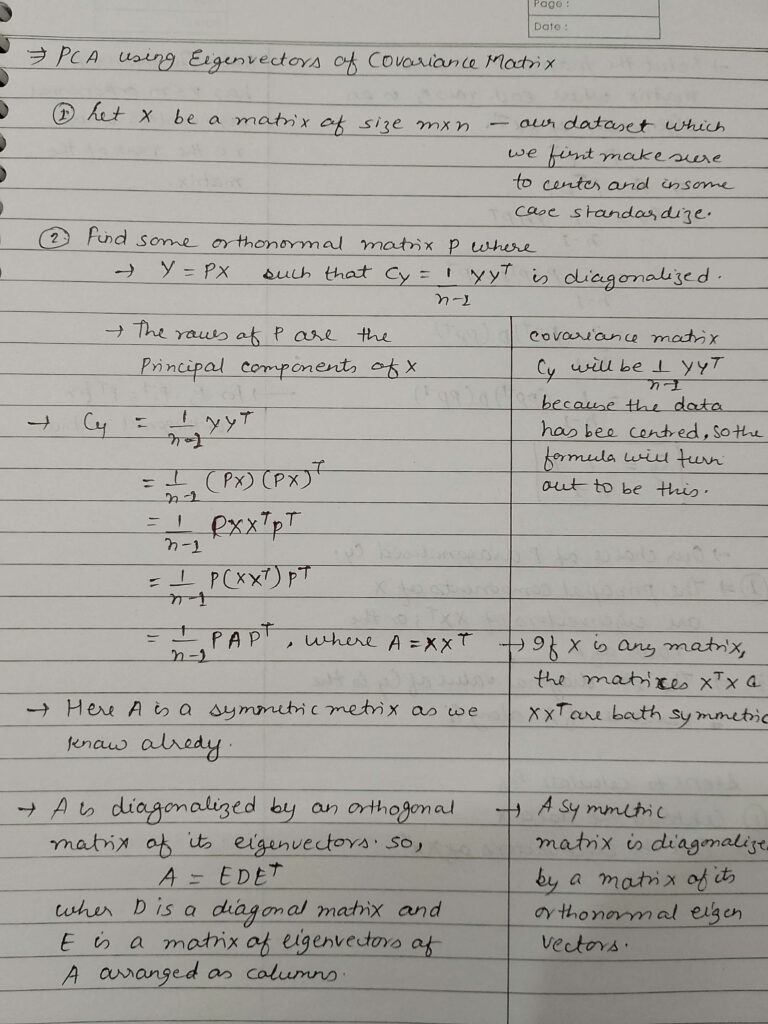 Page :
Date :
⇒ PCA using Eigenvectors of Covariance Matrix
① Let X be a matrix of size m×n – our dataset which
we first make sure
to center and in some
case standardize.
② Find some orthonormal matrix P where
→ Y = PX such that Cy = 1/(n-1) YY^T is diagonalized.
→ The rows of P are the
Principal components of X
covariance matrix
Cy will be 1/(n-1) YY^T
because the data
has bee centred, so the
formula will turn
out to be this.
→ Cy = 1/(n-1) YY^T
= 1/(n-1) (PX) (PX)^T
= 1/(n-1) PXX^TP^T
= 1/(n-1) P(XX^T) P^T
= 1/(n-1) PAP^T, where A = XX^T
→ Here A is a symmetric metrix as we
know alredy.
→ If X is any matrix,
the matrixes X^TX a
XX^T are both symmetric
→ A is diagonalized by an orthogonal
matrix of its eigenvectors. so,
A = EDE^T
wher D is a diagonal matrix and
E is a matrix of eigenvectors of
A arranged as columns.
→ A symmetric
matrix is diagonalize
by a matrix of its
orthonormal eigen
vectors.